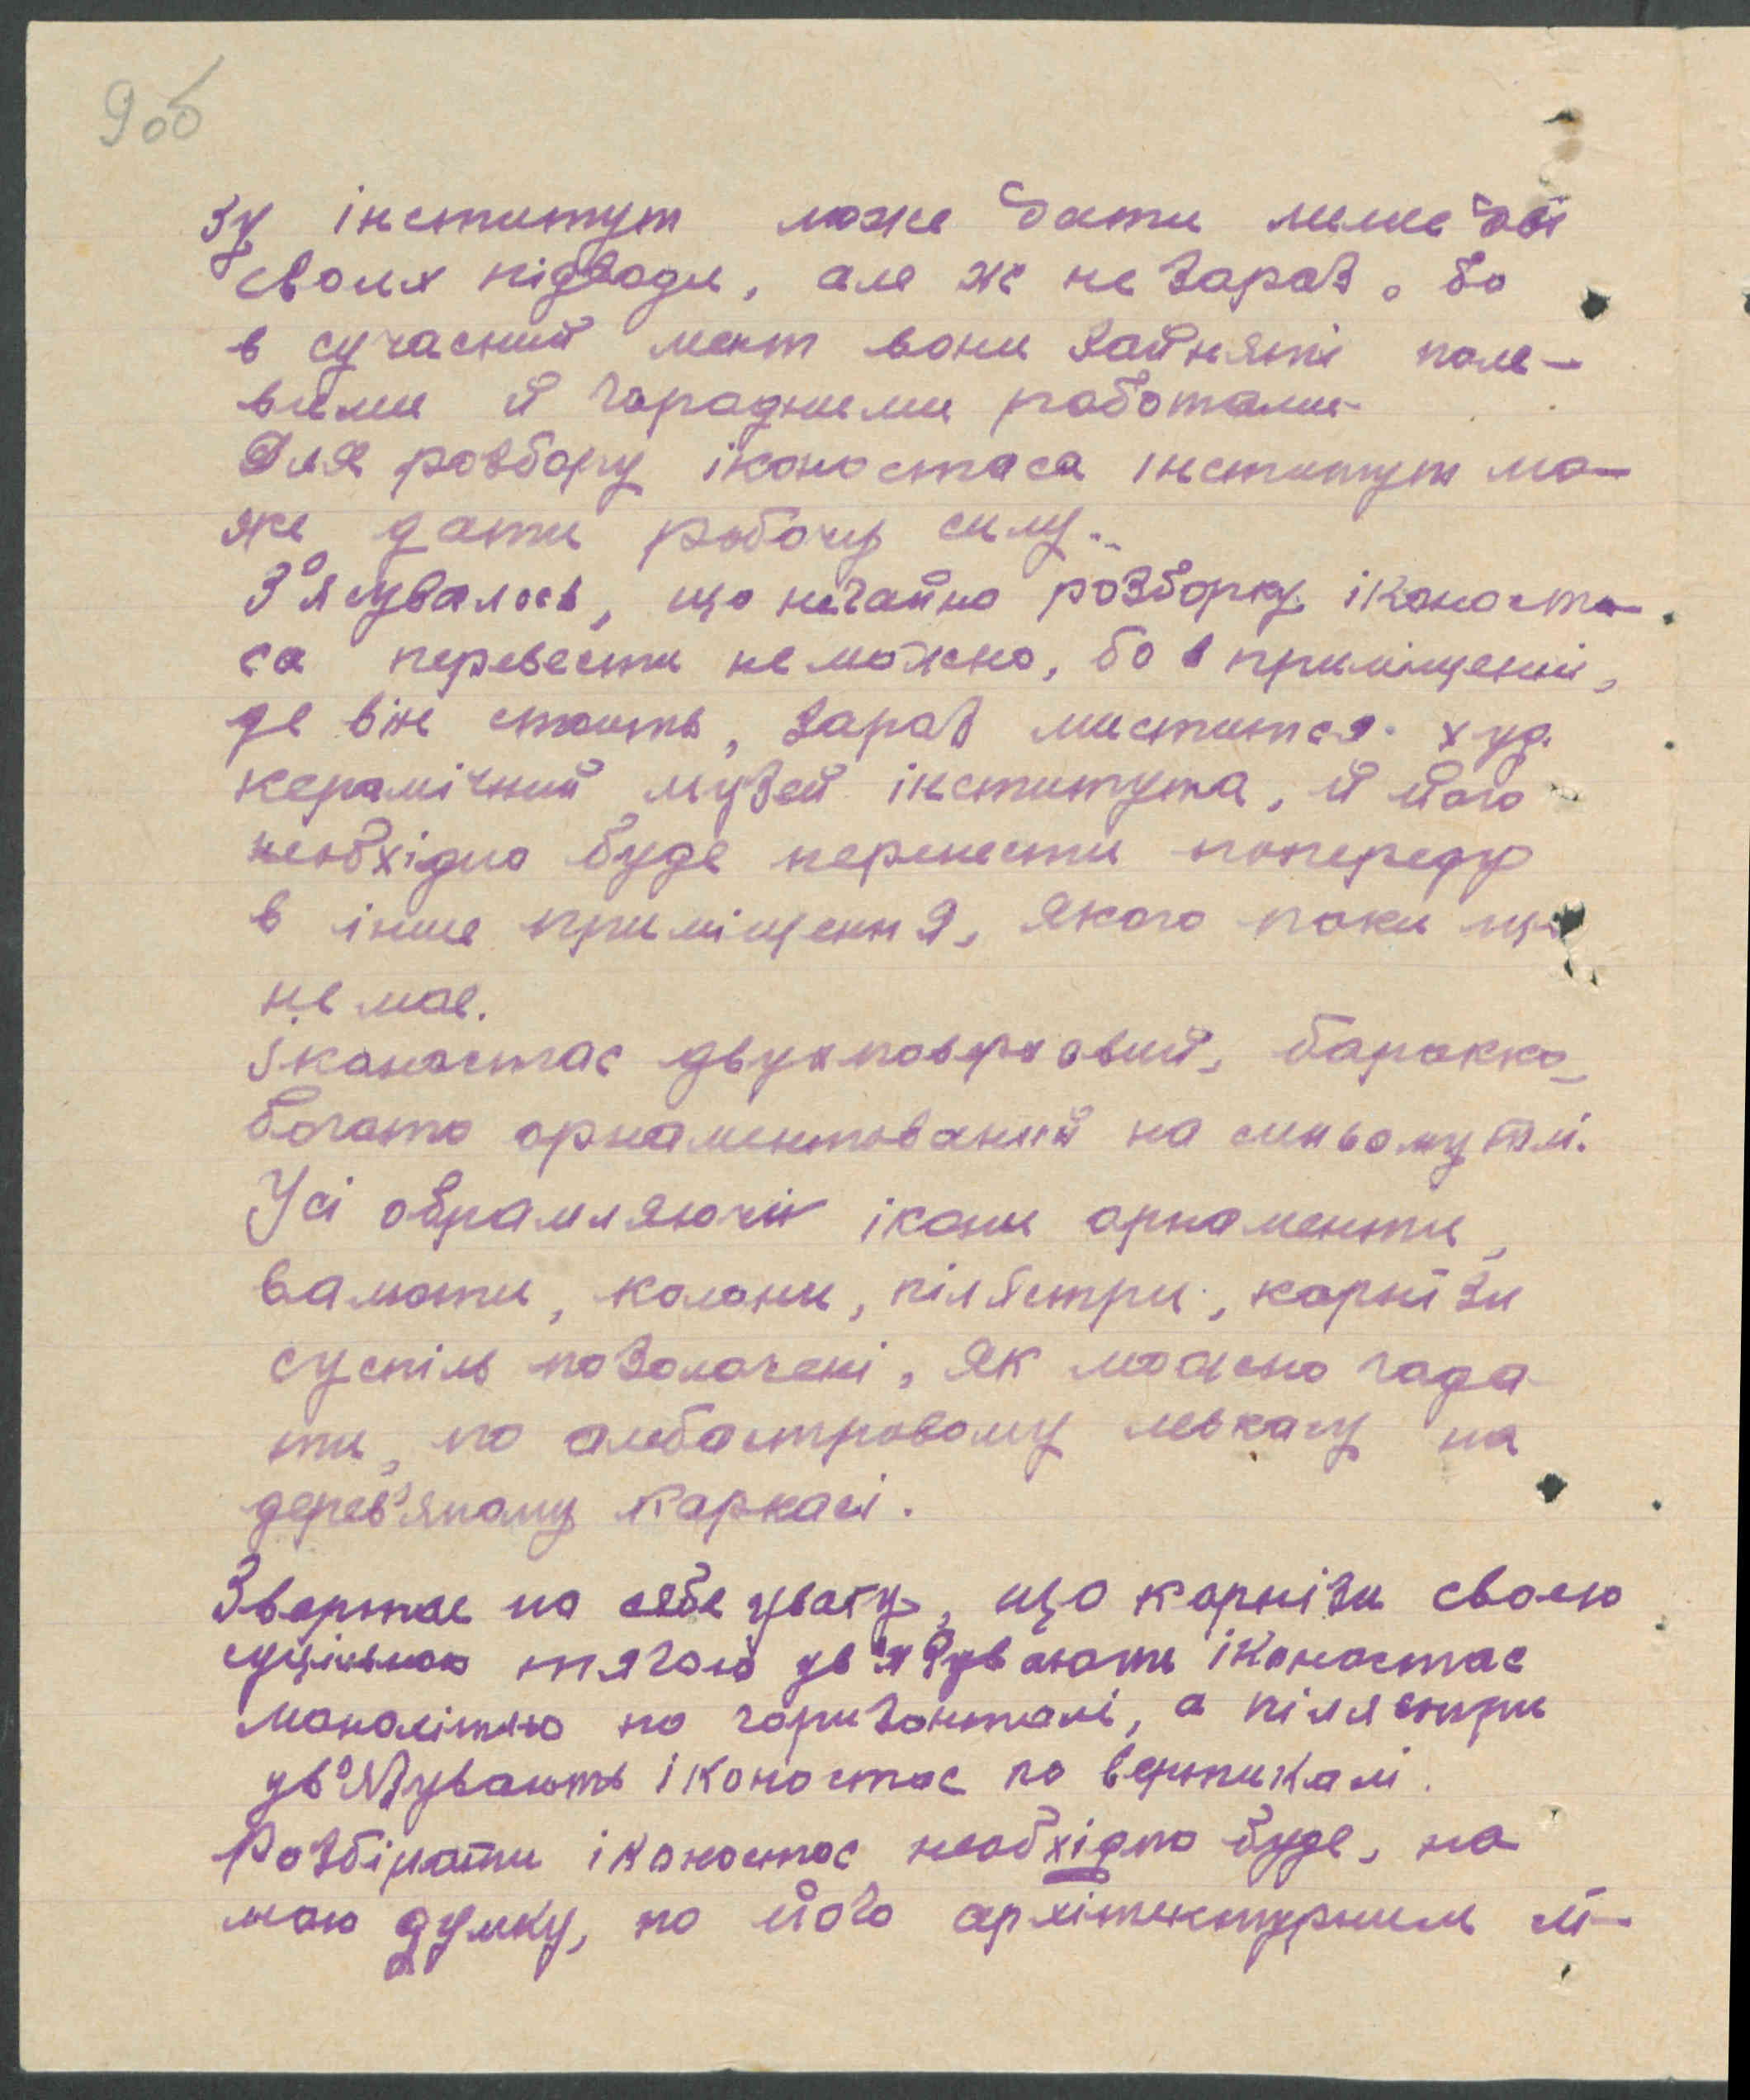 9 об
зу інститут може дати лише дві
своїх підводи, але ж не зараз, бо
в сучасний мент вони зайняті поле-
вими й городними работами.
Для розбору іконостаса інститут мо-
же дати робочу силу.
З'ясувалось, що негайно розборку іконоста-
са перевести не можно, бо в приміщенні,
де він стоить, зараз миститься худ.
керамічний музей інститута, й його
необхідно буде перенести попереду
в інше приміщення, якого поки що
не має.
Іконостас двухповерховий, барокко,
богато орнаментований на синьому тлі.
Усі обрамляючи ікони орнаменти,
валюти, колони, пілястри, карнізи
суспіль позолочені, як можно гада-
ти, по алебастровому левкасу на
дерев'яному каркасі.
Звертає на себе увагу, що карнізи своєю
суцільною тягою ув'язувають іконостас
монолітно по горизонталі, а пілястри
ув'язувають іконостас по вертикалі.
Розбірати іконостас необхідно буде, на
мою думку, по його архітектурним лі-